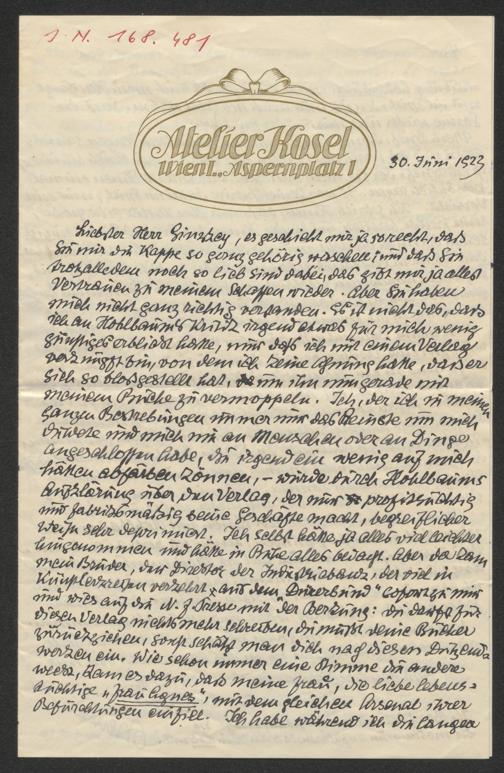 J. N. 168.481
Atelier Kosel
Wien I., Aspernplatz 1
30. Juni 1923
Liebster Herr Ginzkey, es geschieht mir ja so recht, daß
Sie mir die Kappe so ganz gehörig waschen und daß Sie
trotzalledem noch so lieb sind dabei, das gibt mir ja alles
Vertrauen zu meinem Schaffen wieder. Aber Sie haben
mich nicht ganz richtig verstanden. Es ist nicht das, daß
ich an Hohlbaums Kritik irgend etwas für mich wenig
günstiges erblickt hätte, nur daß ich mit einem Verlag
verknüpft bin, von dem ich keine Ahnung hatte, daß er
sich so bloßgestellt hat, ihn nun gerade mit
meinem Buche zu vermoppeln. Ich, der ich in meinen
ganzen Bestrebungen immer nur das Reinste um mich
duldete und mich nie an Menschen oder an Dinge
angeschlossen habe, die irgend ein wenig auf mich
hätten abfärben können, – wurde durch Hohlbaums
Aufklärung über den Verlag, der nur profitsüchtig
und fabriksmäßig seine Geschäfte macht, begreiflicher
Weise sehr deprimiert. Ich selbst hätte ja alles viel leichter
hingenommen und hätte in Ruhe alles besiegt. Aber da kam
mein Bruder, der Direktor der Industriebank, der viel in
Künstlerkreisen verkehrt, aus dem sofort zu mir
und wies auf die N. f. Presse mit der Bemerkung: du darfst für
diesen Verlag nichts mehr schreiben, du mußt deine Bücher
zurückziehen, sonst schätzt man dich nach diesen Dutzend-
werken ein. Wie schon immer eine Stimme die andere
weckt, kam es dazu, daß meine Frau, die liebe lebens-
tüchtige "Frau Agnes", mit dem gleichen Arsenal ihrer
Befürchtungen einfiel. Ich habe während ich die langen